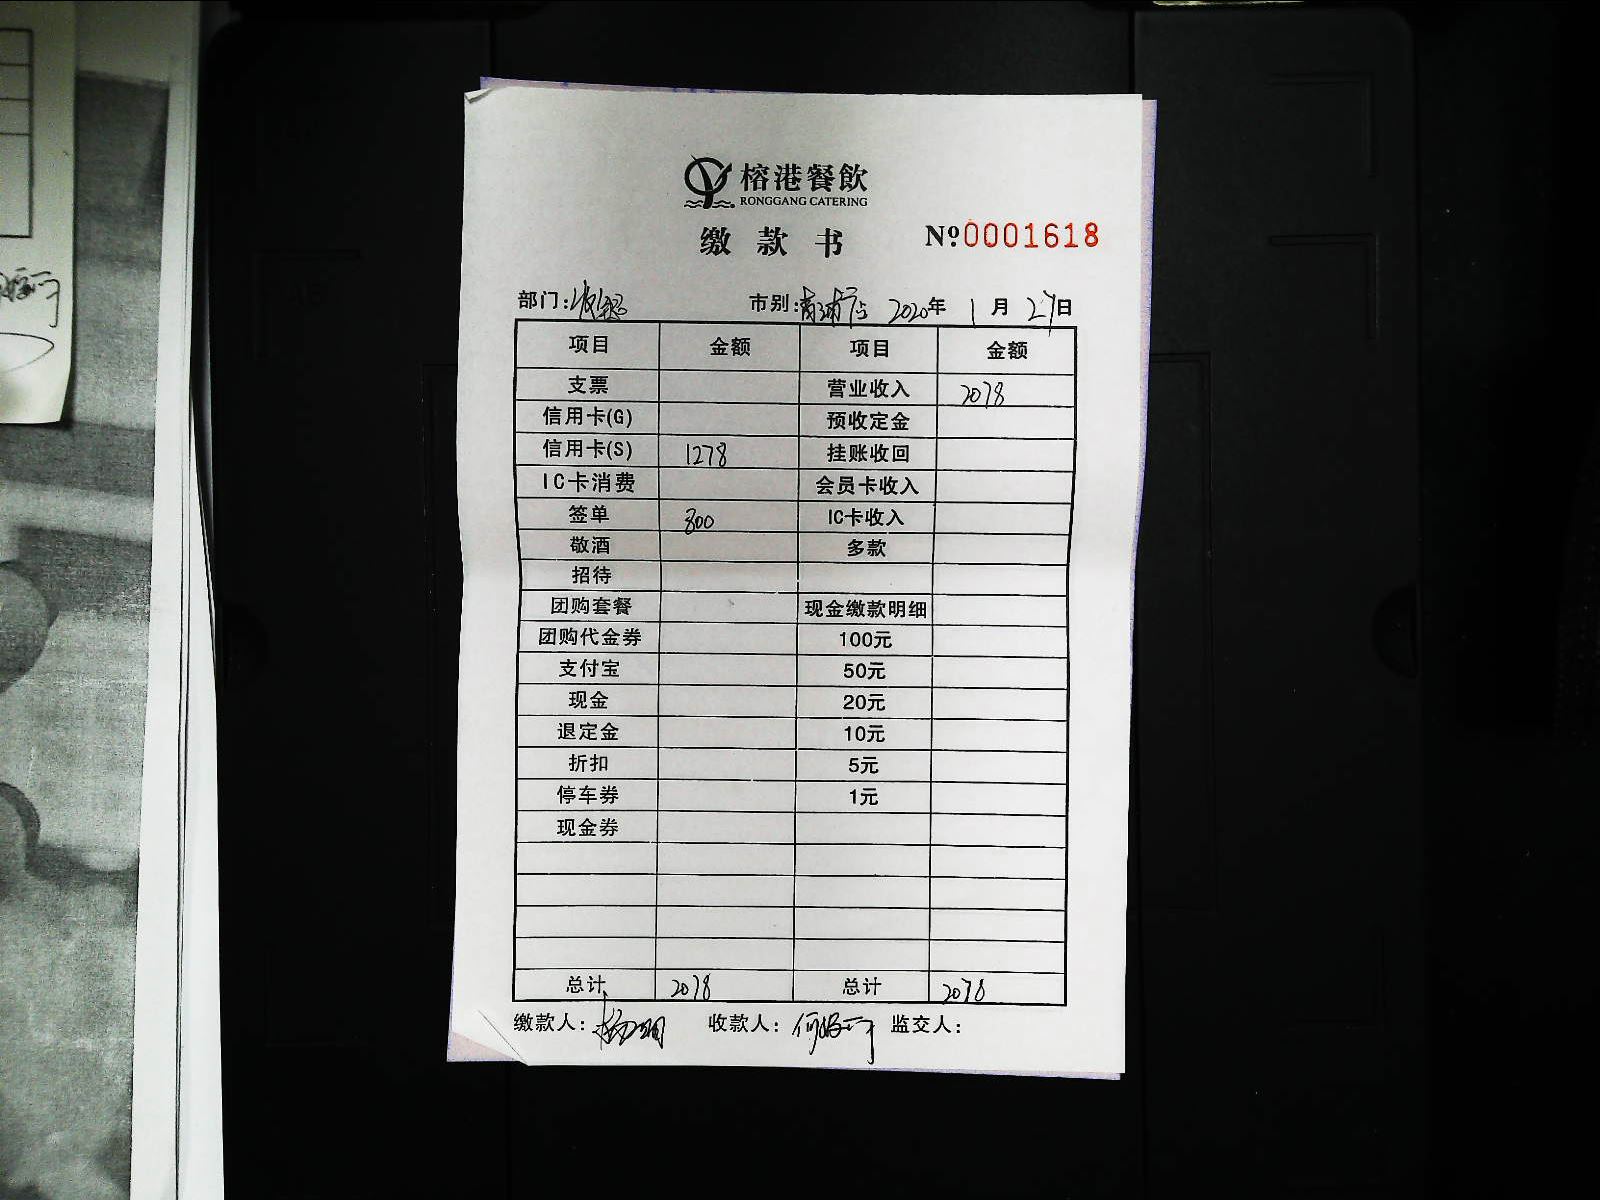 榕港餐飲
RONGGANG CATERING
缴款书 №0001618
部门: 市别: 南浦店 2020年 1月 27日
项目 金额 项目 金额
支票 营业收入 2078
信用卡(G) 预收定金
信用卡(S) 1278 挂账收回
IC卡消费 会员卡收入
签单 800 IC卡收入
敬酒 多款
招待
团购套餐 现金缴款明细
团购代金券 100元
支付宝 50元
现金 20元
退定金 10元
折扣 5元
停车券 1元
现金券
总计 2078 总计 2078
缴款人: 收款人: 监交人: